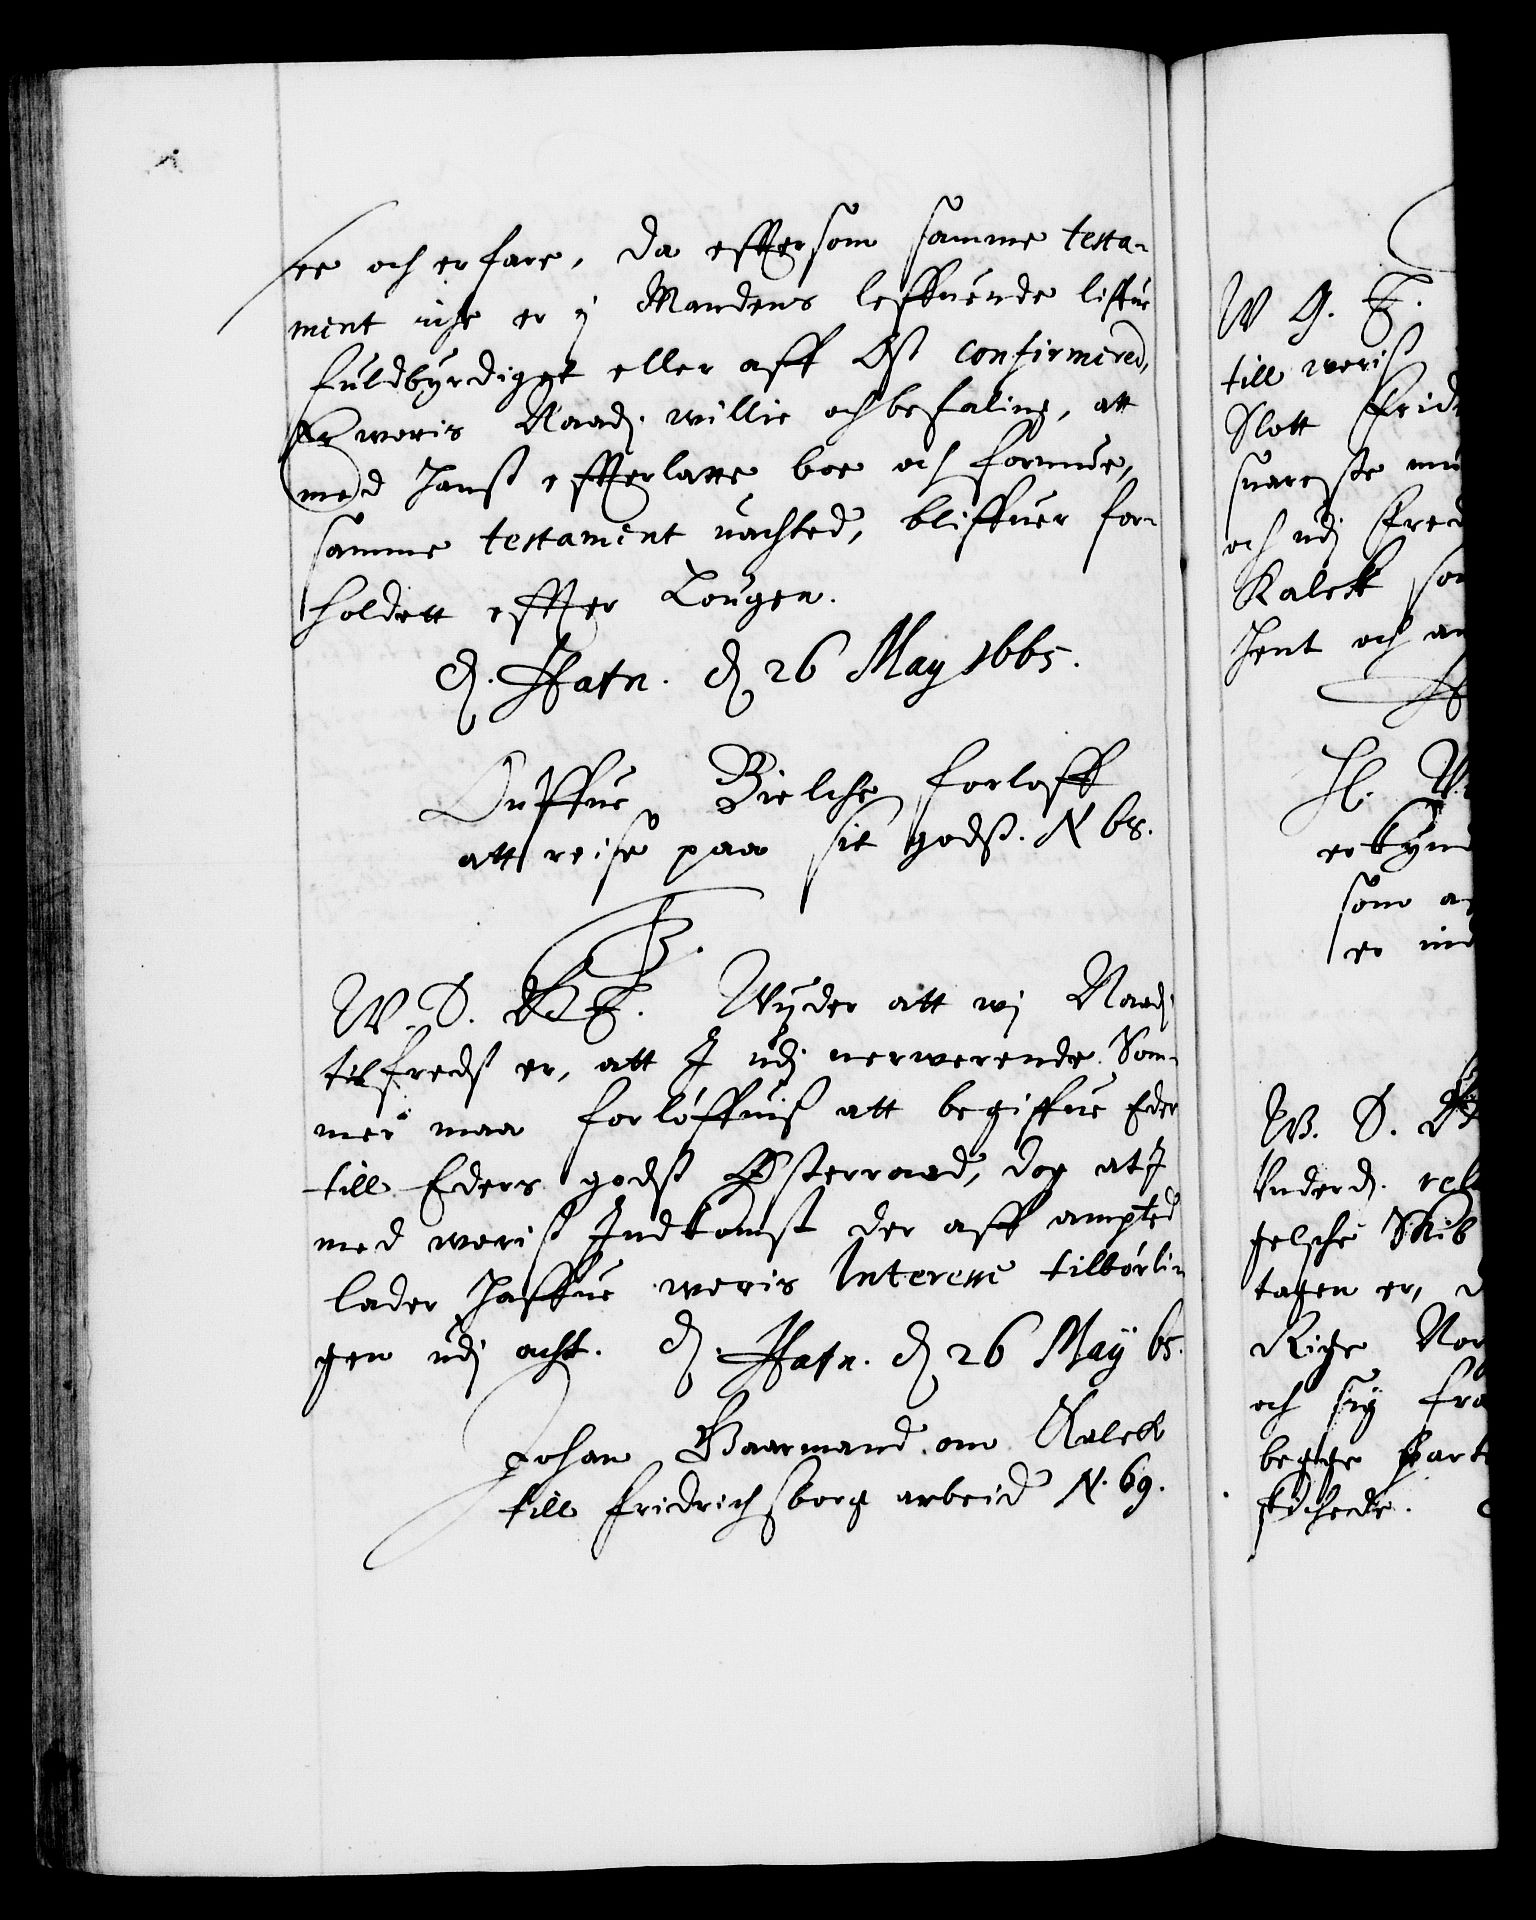 see och erfare, da efftersom samme testa-
ment iche er i Mandens leffuende liffue
fuldbyrdiget eller aff Oss confirmered,
Er woris Naad. willie och befaling, att
med hans efterlatte boe och formue,
samme testament uachted, bliffuer for-
holdett effter Lougen.
Hafn. d 26 May 1665.
Ouffue Bielche forloff
att reise paa sit godß. N 68.
W. S. G T. Wyder att wi Naad.
tilfredß er, att I udi nerwerende Som-
mer maa forløffuiß att begiffue Eder
till Eders godß Østerraad, dog at I
med woriß Indkomst der aff ampted
lader haffue woris Interesse tilbørli-
gen udi acht. Hafn. d 26 May 65.
Johan Baarmand om Kalck
till Fridrichsborg arbeid N. 69.
W G. T.
till woriß
Slott Frid
snareste mu
och udi Fred
Kalck som
hent och an
H.
som
er
W. S.
Underd.
gelsche Skib
tagen er,
Rige Nor
och sig fra
begge part